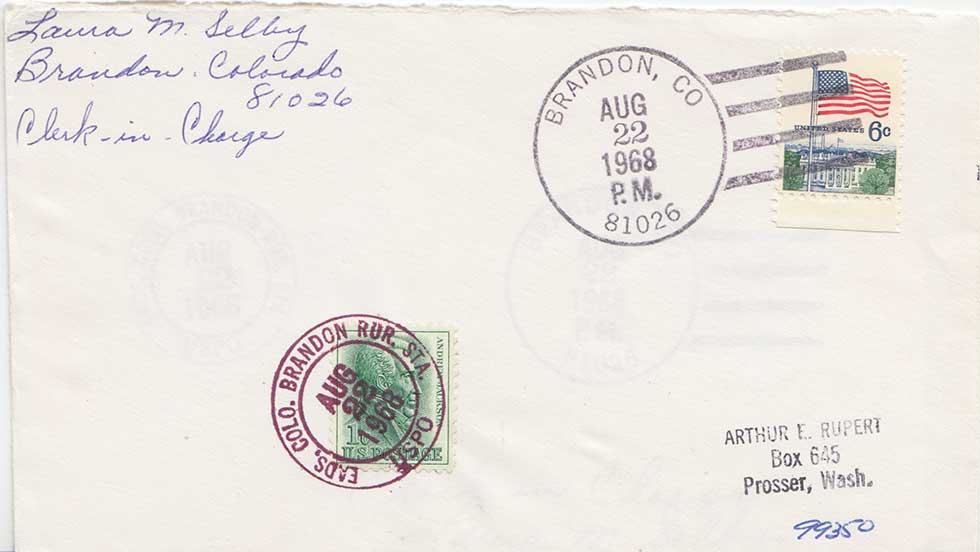 Laura M. Selby
Brandon. Colorado
81026
Clerk-in-Charge
BRANDON, CO
AUG
22
1968
P.M.
81026
UNITED STATES 6c
EADS, COLO. BRANDON RUR. STA.
AUG
22
1968
USPO
ANDREW JACKSON
1c
U.S. POSTAGE
ARTHUR E. RUPERT
Box 645
Prosser, Wash.
99350